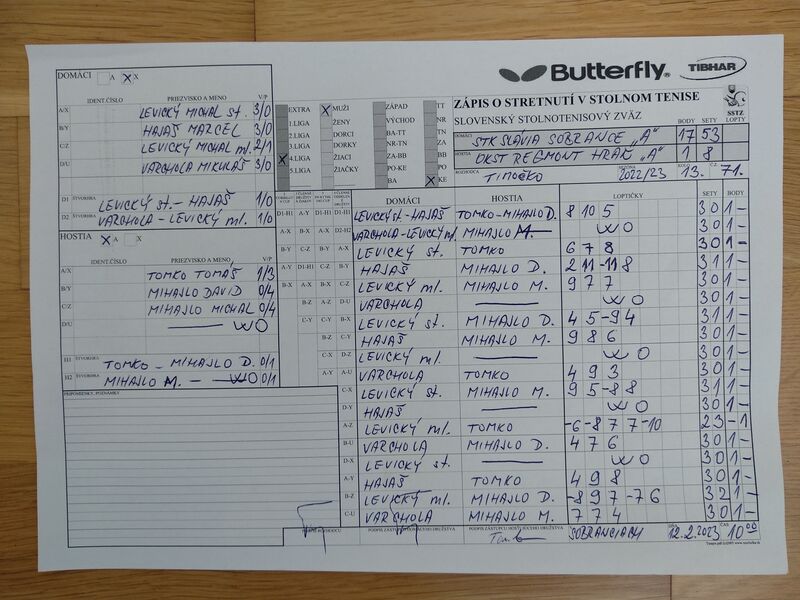 Butterfly
TIBHAR
DOMÁCI A X X
IDENT.ČÍSLO PRIEZVISKO A MENO V/P
A/X LEVICKÝ MICHAL st. 3/0
B/Y HAJAŠ MARCEL 3/0
C/Z LEVICKÝ MICHAL ml. 2/1
D/U VARCHOLA MIKULÁŠ 3/0
D1 ŠTVORHRA LEVICKÝ st. - HAJAŠ 1/0
D2 ŠTVORHRA VARCHOLA - LEVICKÝ ml. 1/0
HOSTIA X A X
IDENT.ČÍSLO PRIEZVISKO A MENO V/P
A/X TOMKO TOMAŠ 1/3
B/Y MIHAJLO DAVID 0/4
C/Z MIHAJLO MICHAL 0/4
D/U — WO
H1 ŠTVORHRA TOMKO - MIHAJLO D. 0/1
H2 ŠTVORHRA MIHAJLO M. - WO 0/1
PRIPOMIENKY, POZNÁMKY
EXTRA X MUŽI ZÁPAD TT
1.LIGA ŽENY VÝCHOD NR
2.LIGA DORCI BA-TT TN
3.LIGA DORKY NR-TN ZA
X 4.LIGA ŽIACI ZA-BB BB
5.LIGA ŽIAČKY PO-KE PO
BA X KE
ZÁPIS O STRETNUTÍ V STOLNOM TENISE
SLOVENSKÝ STOLNOTENISOVÝ ZVÄZ
SSTZ
BODY SETY LOPTY
DOMÁCI STK SLÁVIA SOBRANCE „A" 17 53
HOSTIA OKST REGMONT HRAŇ „A" 1 8
ROZHODCA TIMOČKO 2022/23 13. 71.
DOMÁCI HOSTIA LOPTIČKY SETY BODY
D1-H1 A-X D1-H1 D1-H1 LEVICKÝ st. - HAJAŠ TOMKO - MIHAJLO D. 8 10 5 3 0 1 -
A-X B-X B-Y D2-H2 VARCHOLA - LEVICKÝ ml. MIHAJLO M. WO 3 0 1 -
B-Y C-Z A-X LEVICKÝ st. TOMKO 6 7 8 3 0 1 -
A-Y D1-H1 C-Z B-Y HAJAŠ MIHAJLO D. 2 11 -11 8 3 1 1 -
B-X A-X C-Z LEVICKÝ ml. MIHAJLO M. 9 7 7 3 0 1 -
B-Z A-Z D-U VARCHOLA — WO 3 0 1 -
C-Y LEVICKÝ st. MIHAJLO D. 4 5 -9 4 3 1 1 -
B-Z HAJAŠ MIHAJLO M. 9 8 6 3 0 1 -
C-X LEVICKÝ ml. — WO 3 0 1 -
A-Y VARCHOLA TOMKO 4 9 3 3 0 1 -
C-X LEVICKÝ st. MIHAJLO M. 9 5 -8 8 3 1 1 -
D-Y HAJAŠ — WO 3 0 1 -
A-Z LEVICKÝ ml. TOMKO -6 -8 7 7 -10 2 3 - 1
B-U VARCHOLA MIHAJLO D. 4 7 6 3 0 1 -
D-X LEVICKÝ st. — WO 3 0 1 -
A-Y HAJAŠ TOMKO 4 9 8 3 0 1 -
B-Z LEVICKÝ ml. MIHAJLO D. -8 9 7 -7 6 3 2 1 -
C-U VARCHOLA MIHAJLO M. 7 7 4 3 0 1 -
PODPIS ZÁSTUPCU DOMÁCEHO DRUŽSTVA PODPIS ZÁSTUPCU HOSŤUJÚCEHO DRUŽSTVA SOBRANCIACH 12.2.2023 ČAS 10 00